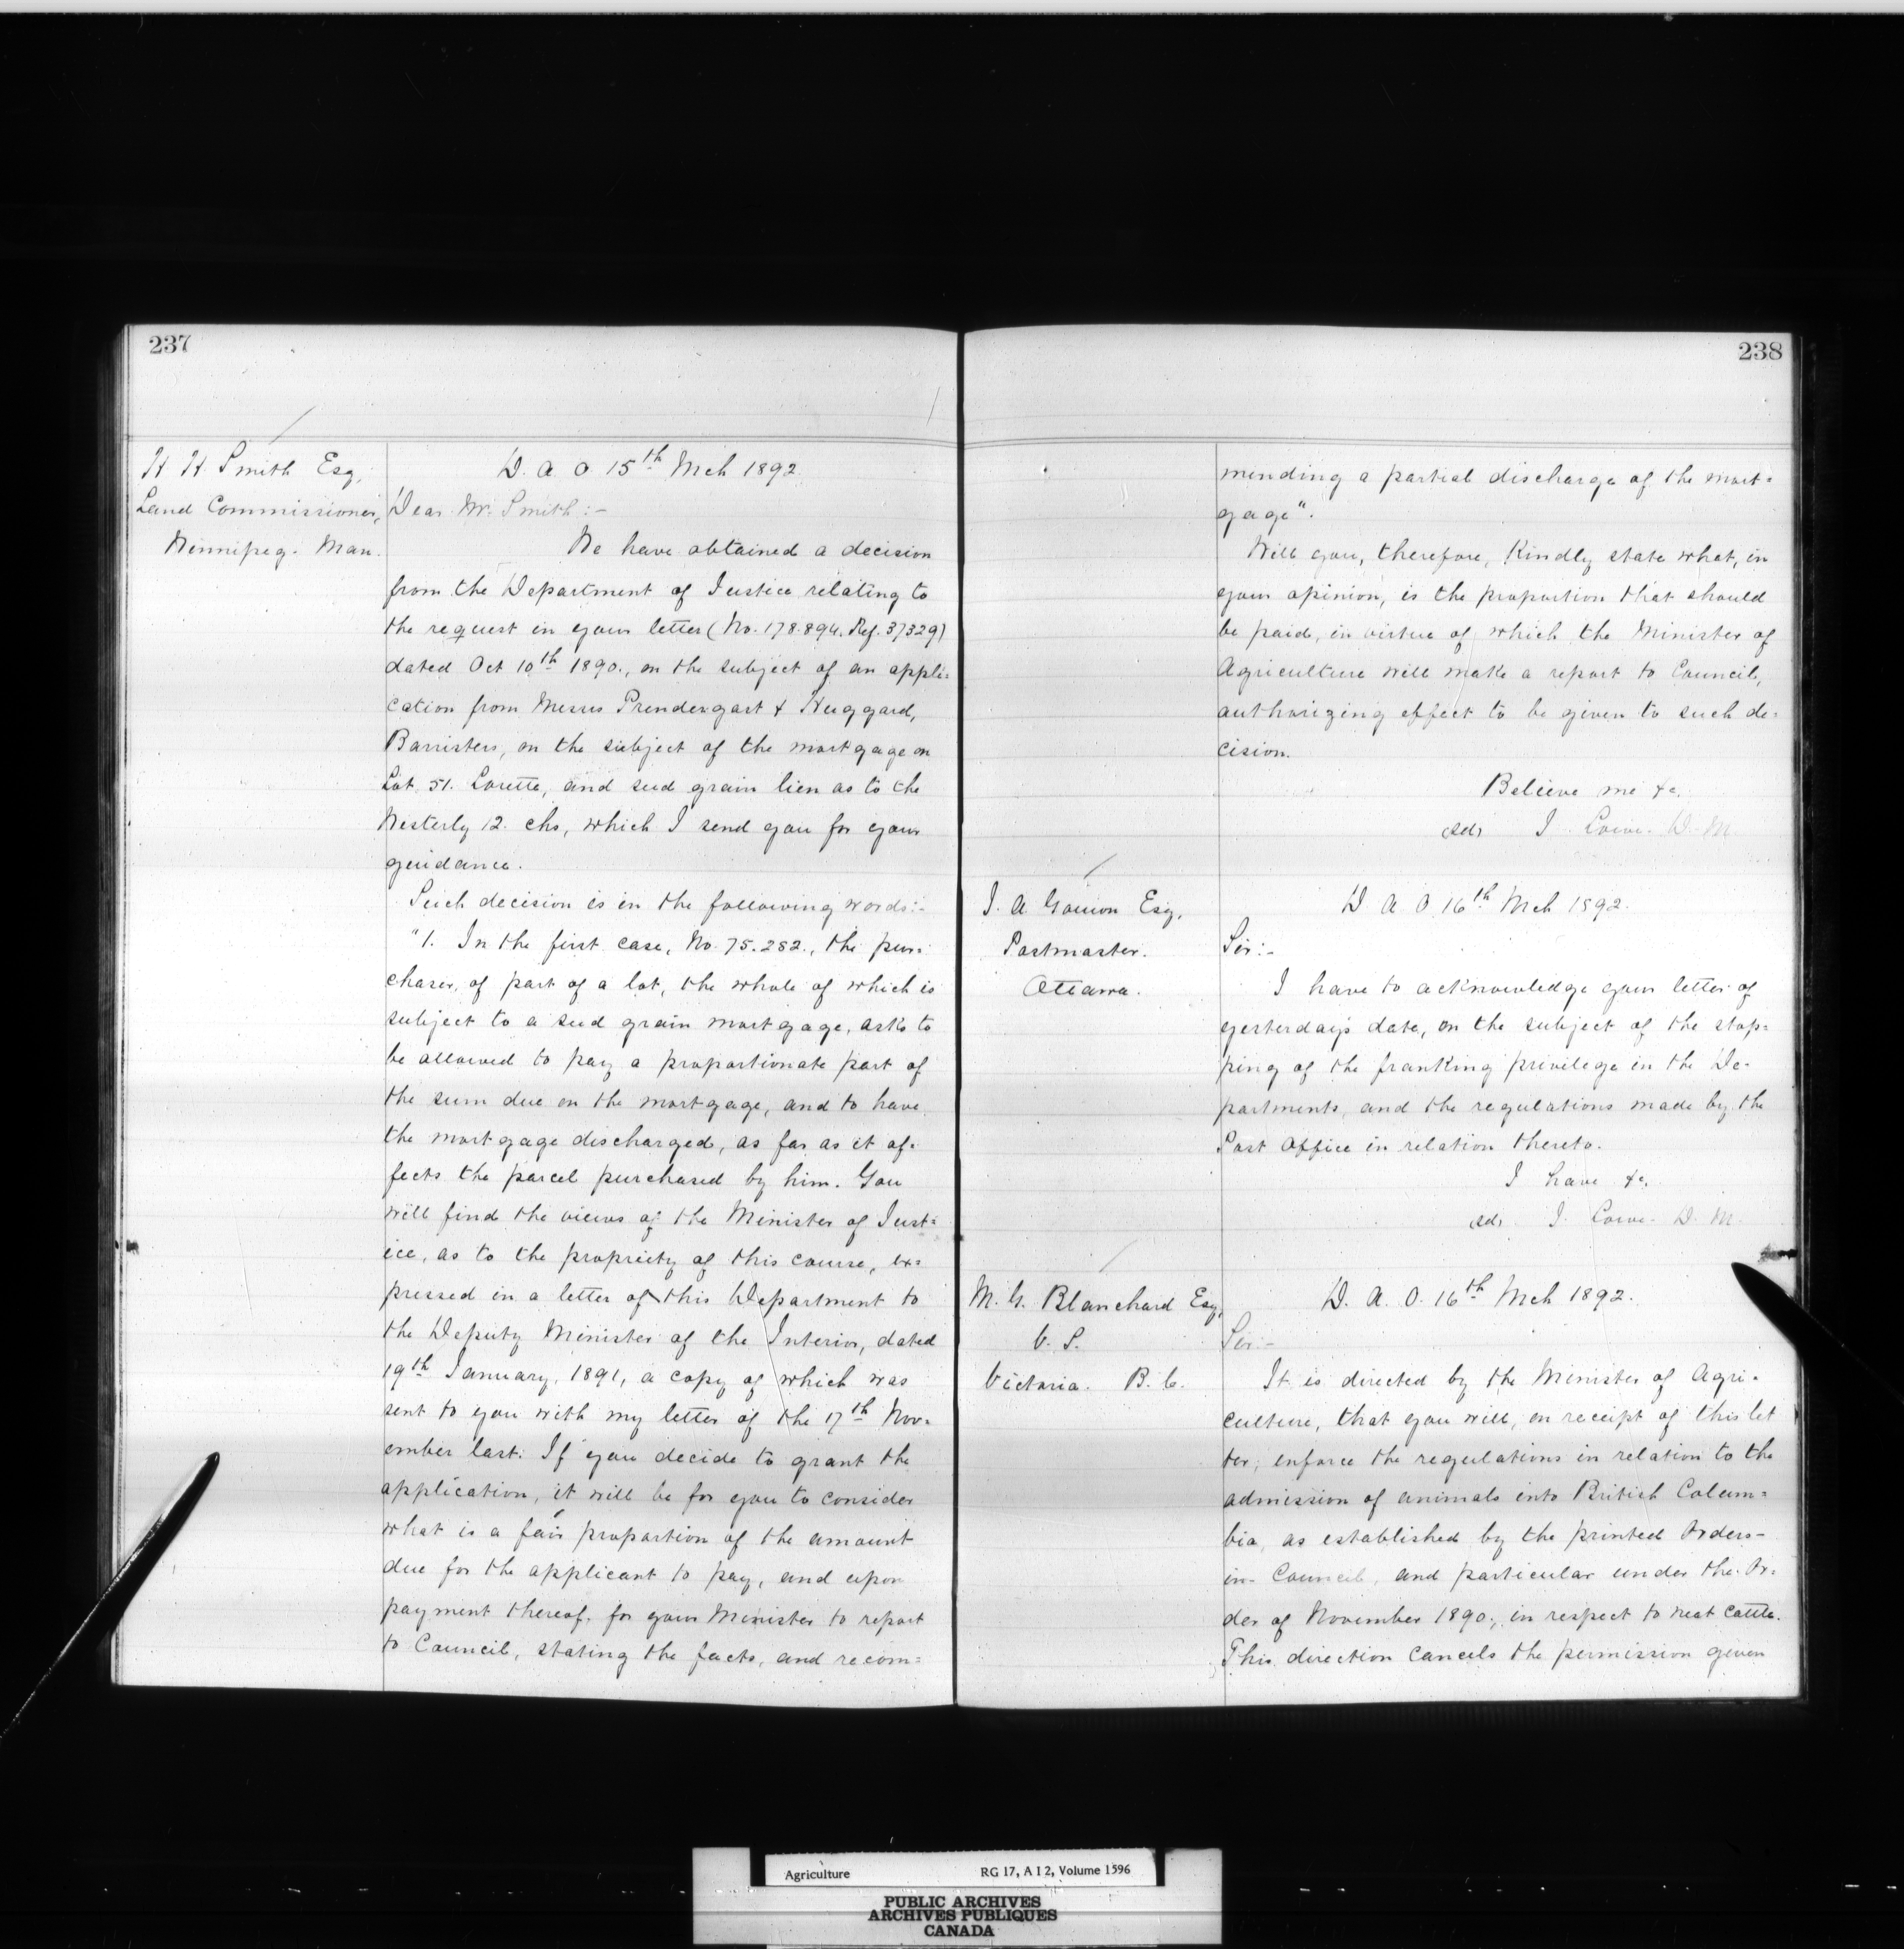 237
H H. Smith Esq,
Land Commissioner,
Winnipeg. Man.
D. A. O 15th Mch 1892
Dear Mr. Smith:-
We have obtained a decision
from the Department of Justice relating to
the request in your letter (No. 178.894. Ref. 37329)
dated Oct 10th 1890., on the subject of an appli=
cation from Messrs Prendergast & Huggard,
Barristers, on the subject of the mortgage on
Lot 51. Lorette, and seed grain lien as to the
Westerly 12. chs, which I send you for your
guidance.
Such decision is in the following words:-
"1. In the first case, No. 75.282., the pur=
chaser, of part of a lot, the whole of which is
subject to a seed grain mortgage, asks to
be allowed to pay a proportionate part of
the sum due on the mortgage, and to have
the mortgage discharged, as far as it af=
fects the parcel purchased by him. You
will find the views of the Minister of Just=
ice, as to the propriety of this course, ex=
pressed in a letter of this Department to
the Deputy Minister of the Interior, dated
19th January, 1891, a copy of which was
sent to you with my letter of the 17th Nov=
ember last. If you decide to grant the
application, it will be for you to consider
what is a fair proportion of the amount
due for the applicant to pay, and upon
payment thereof, for your Minister to report
to Council, stating the facts, and recom=
238
mending a partial discharge of the mort=
gage".
Will you, therefore, kindly state what, in
your opinion, is the proportion that should
be paid, in virtue of which the Minister of
Agriculture will make a report to Council,
authorizing effect to be given to such de=
cision.
Believe me &c.
(sd) J. Lowe. D. M.
J. A. Gouin Esq,
Postmaster.
Ottawa.
D. A. O. 16th Mch 1892.
Sir:-
I have to acknowledge your letter of
yesterday's date, on the subject of the stop=
ping of the franking privilege in the De-
partments, and the regulations made by the
Post Office in relation thereto.
I have &c,
(sd) J. Lowe. D. M.
M. G. Blanchard Esq,
V. S.
Victoria. B. C.
D. A. O. 16th Mch 1892.
Sir:-
It is directed by the Minister of Agri-
culture, that you will, on receipt of this let
ter, enforce the regulations in relation to the
admission of animals into British Colum=
bia, as established by the printed Orders-
in-Council, and particular under the Or-
der of November 1890., in respect to neat cattle.
This direction cancels the permission given
Agriculture RG 17, A I 2, Volume 1596
PUBLIC ARCHIVES
ARCHIVES PUBLIQUES
CANADA